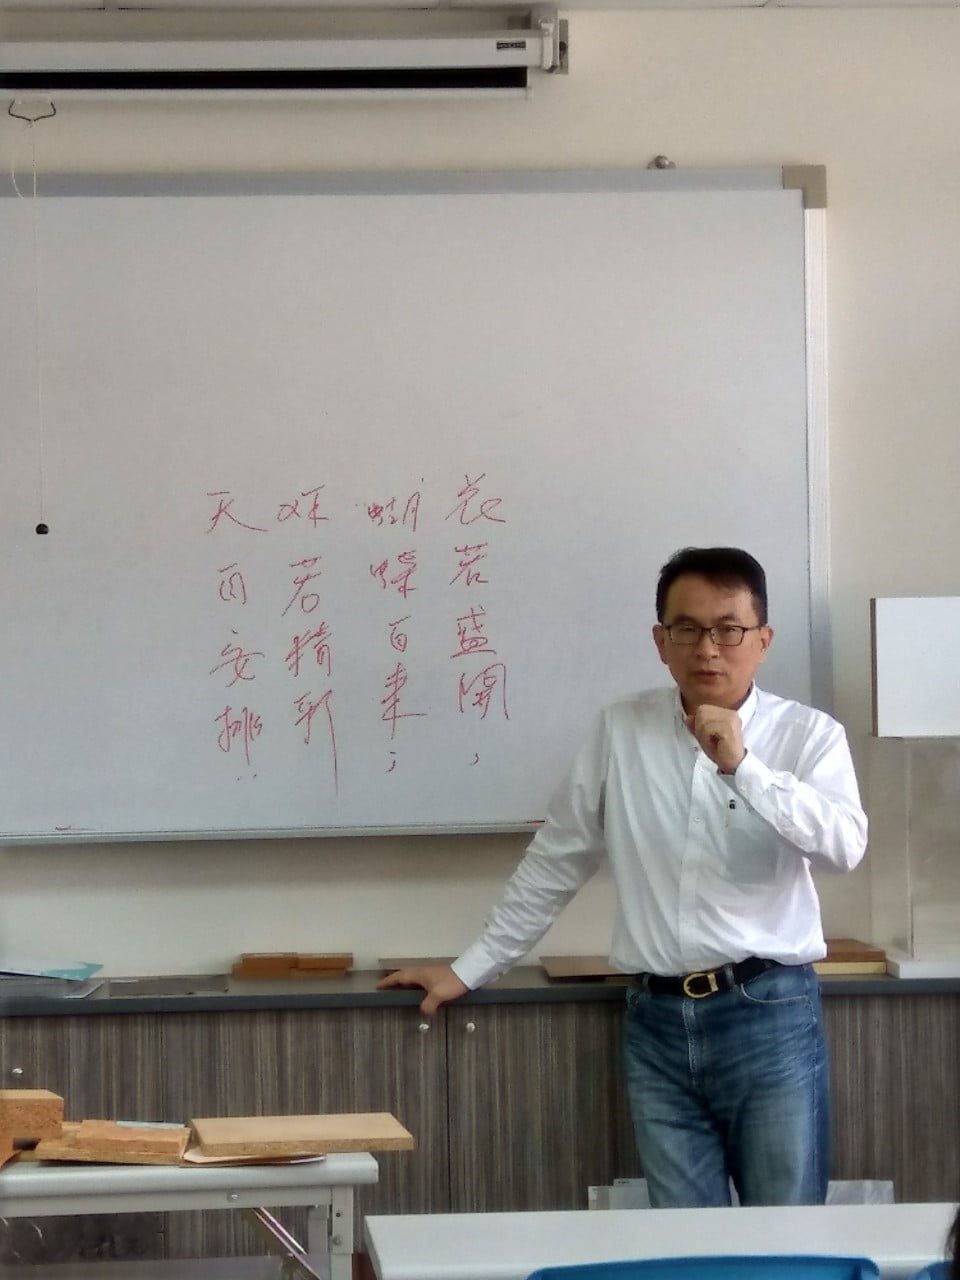 花若盛開，
蝴蝶自来；
妳若精彩
天自安排‥